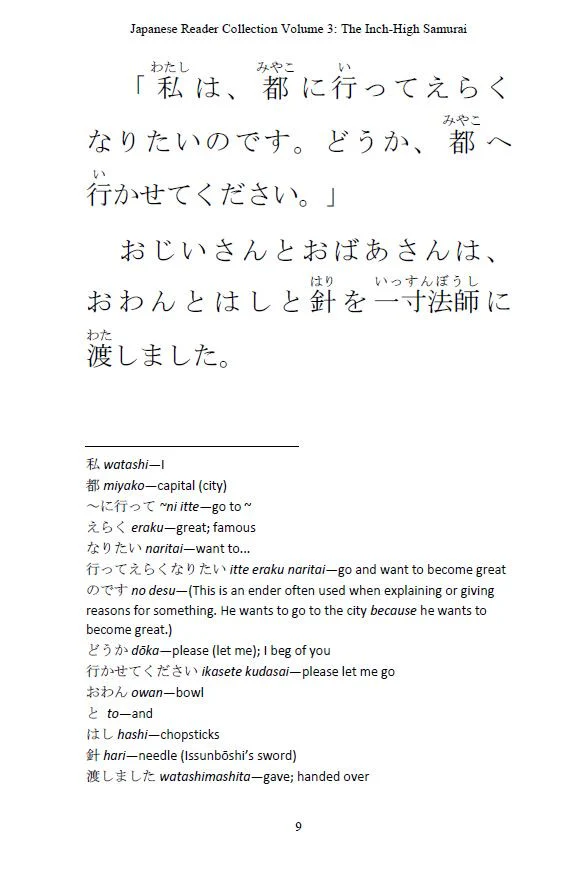 Japanese Reader Collection Volume 3: The Inch-High Samurai
わたし みやこ い
「私は、都に行ってえらく
みやこ
なりたいのです。どうか、都へ
い
行かせてください。」
おじいさんとおばあさんは、
はり いっすんぼうし
おわんとはしと針を一寸法師に
わた
渡しました。
私 watashi—I
都 miyako—capital (city)
〜に行って ~ni itte—go to ~
えらく eraku—great; famous
なりたい naritai—want to...
行ってえらくなりたい itte eraku naritai—go and want to become great
のです no desu—(This is an ender often used when explaining or giving
reasons for something. He wants to go to the city because he wants to
become great.)
どうか dōka—please (let me); I beg of you
行かせてください ikasete kudasai—please let me go
おわん owan—bowl
と to—and
はし hashi—chopsticks
針 hari—needle (Issunbōshi’s sword)
渡しました watashimashita—gave; handed over
9